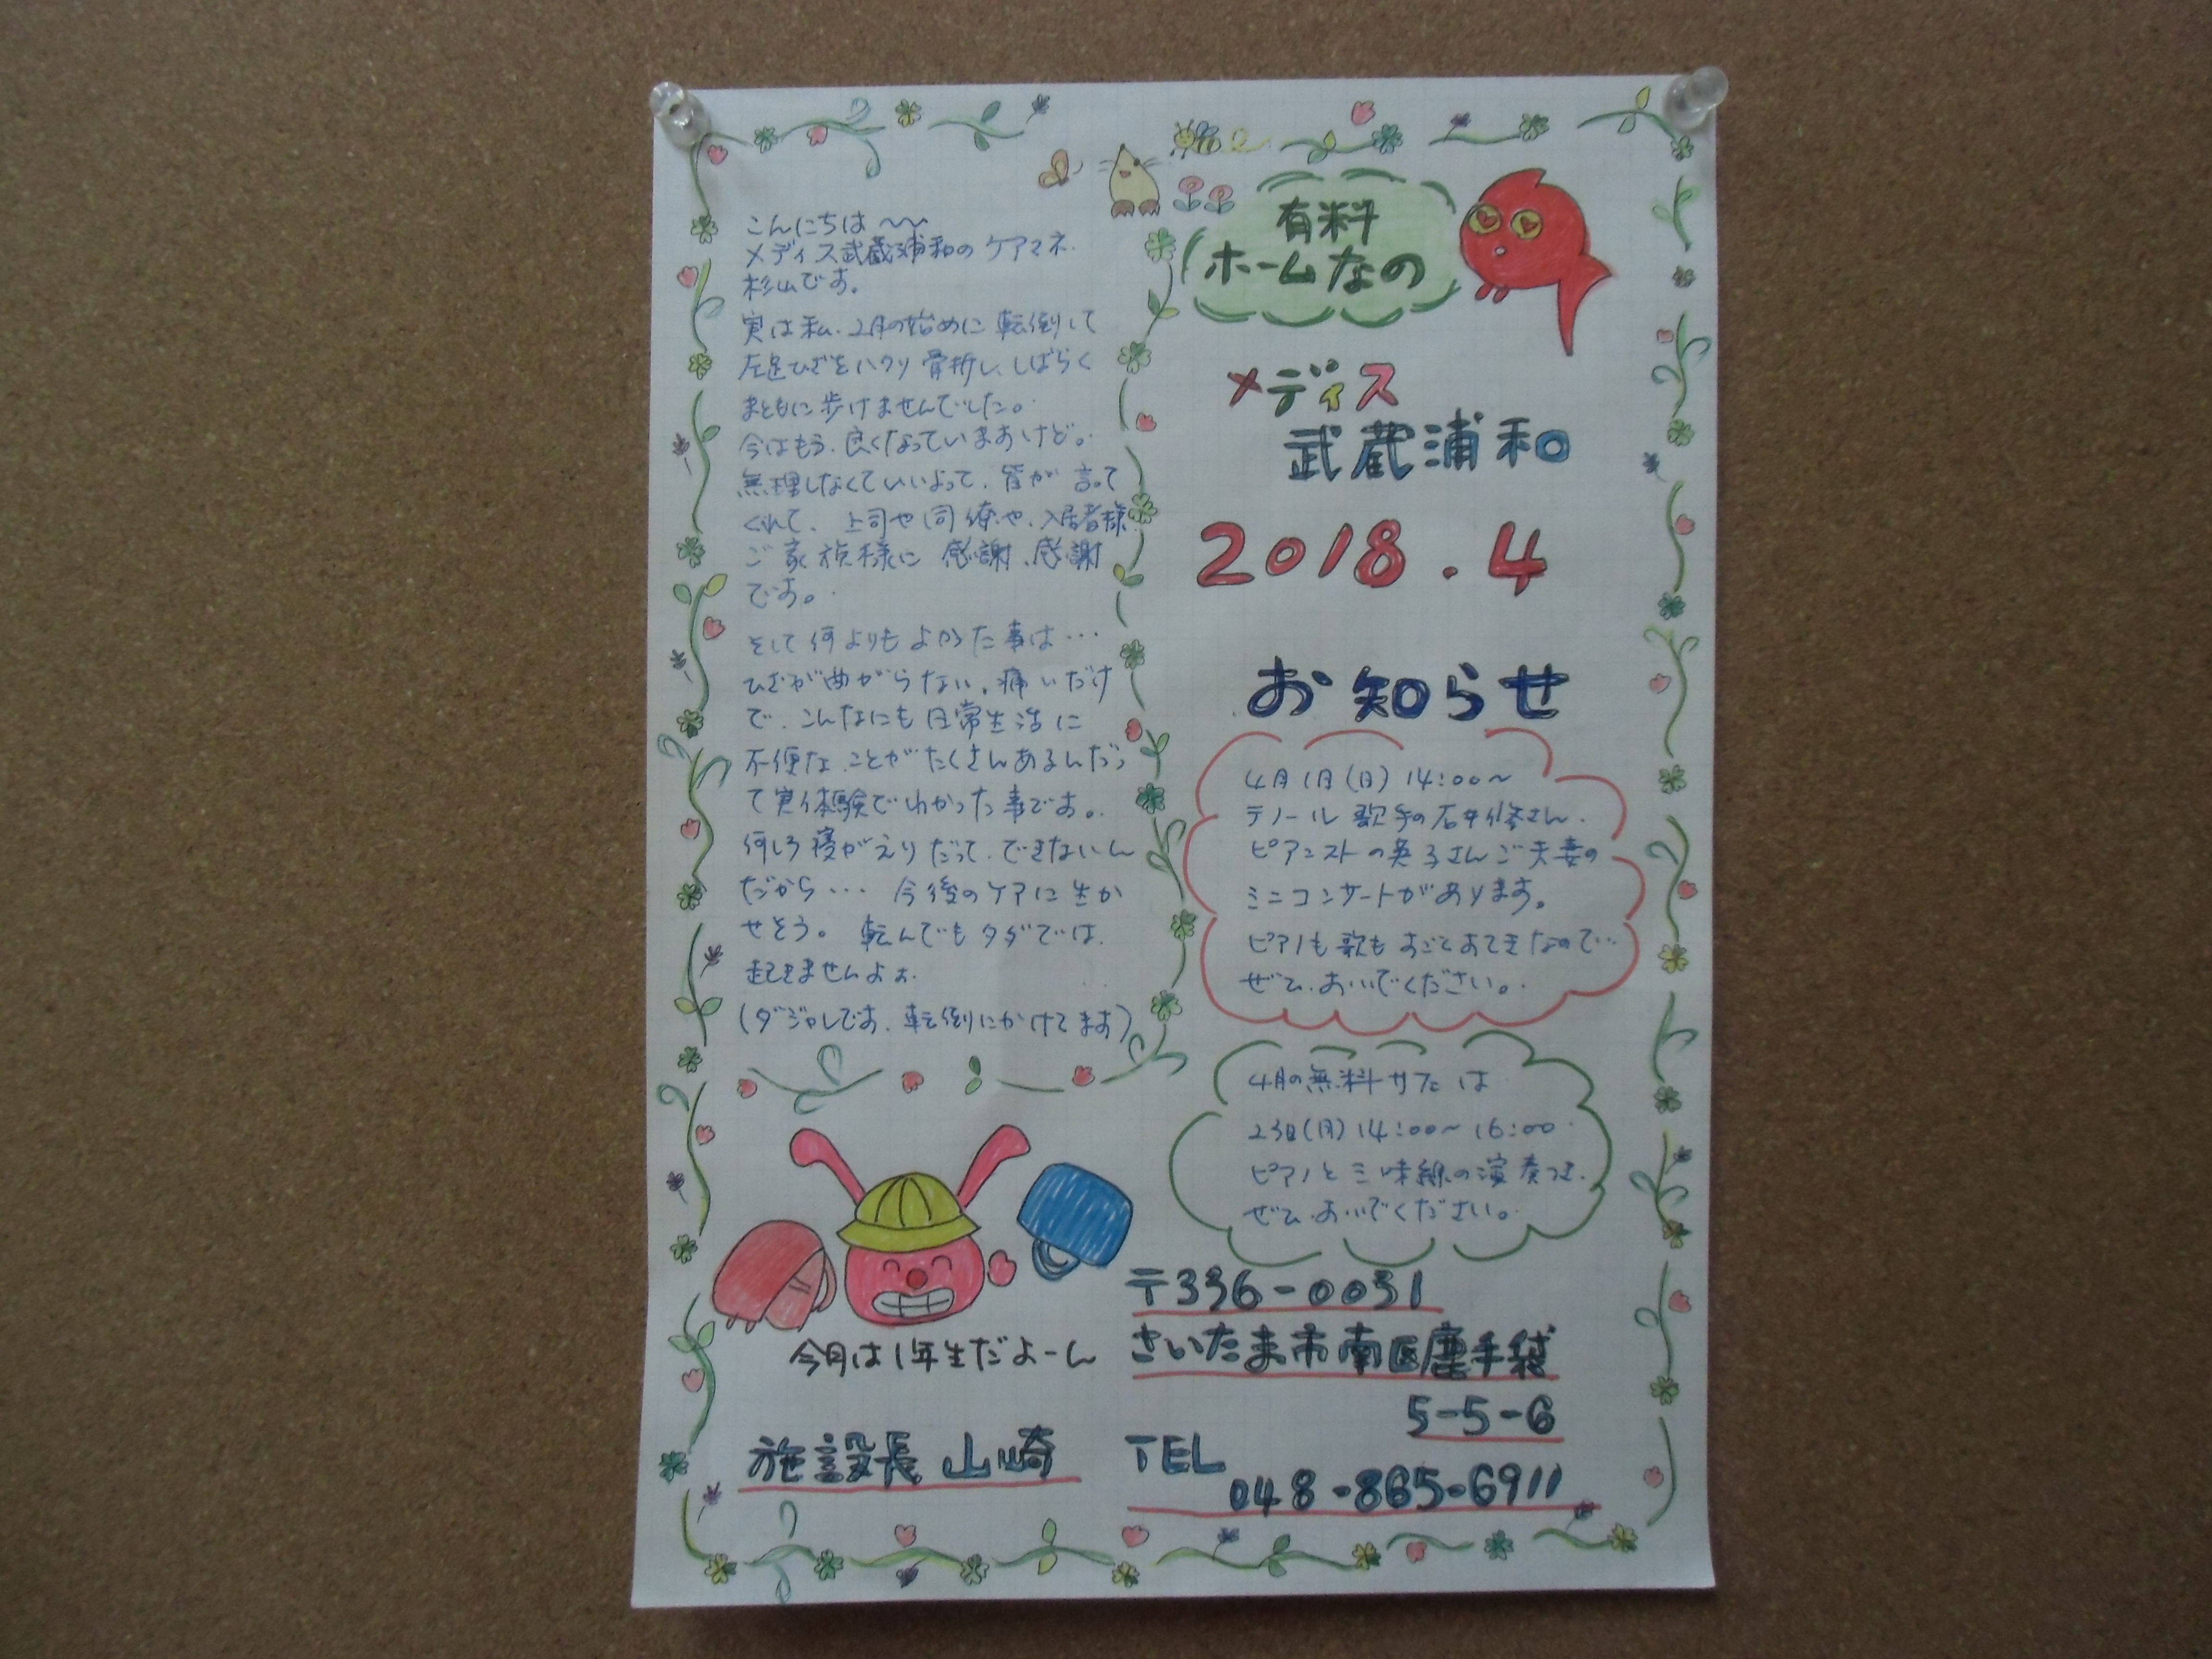 こんにちは〜〜
メディス武蔵浦和のケアマネ.
杉山です。
実は私、2月の始めに転倒して
左足ひざをハクリ骨折し、しばらく
まともに歩けませんでした。
今はもう、良くなっていますけど。
無理しなくていいよって、皆が言って
くれて、上司や同僚や、入居者様
ご家族様に感謝、感謝
です。
そして何よりもよかった事は…
ひざが曲がらない、痛いだけ
で、こんなにも日常生活に
不便なことがたくさんあるんだっ
て実体験でわかった事です。
何しろ寝がえりだって、できないん
だから… 今後のケアに生か
せそう。転んでもタダでは、
起きませんよぉ
(ダジャレです、転倒にかけてます)
今月は1年生だよーん
施設長 山崎
有料
ホームなの
メディス
武蔵浦和
2018.4
お知らせ
4月1日(日) 14:00〜
テノール歌手の石井修さん、
ピアニストの英子さんご夫妻の
ミニコンサートがあります。
ピアノも歌もすごくすてきなので…
ぜひ、おいでください。
4月の無料サロンは
23日(月) 14:00〜16:00
ピアノと三味線の演奏つき、
ぜひ、おいでください。
〒336-0031
さいたま市南区鹿手袋
5-5-6
TEL
048-865-6911